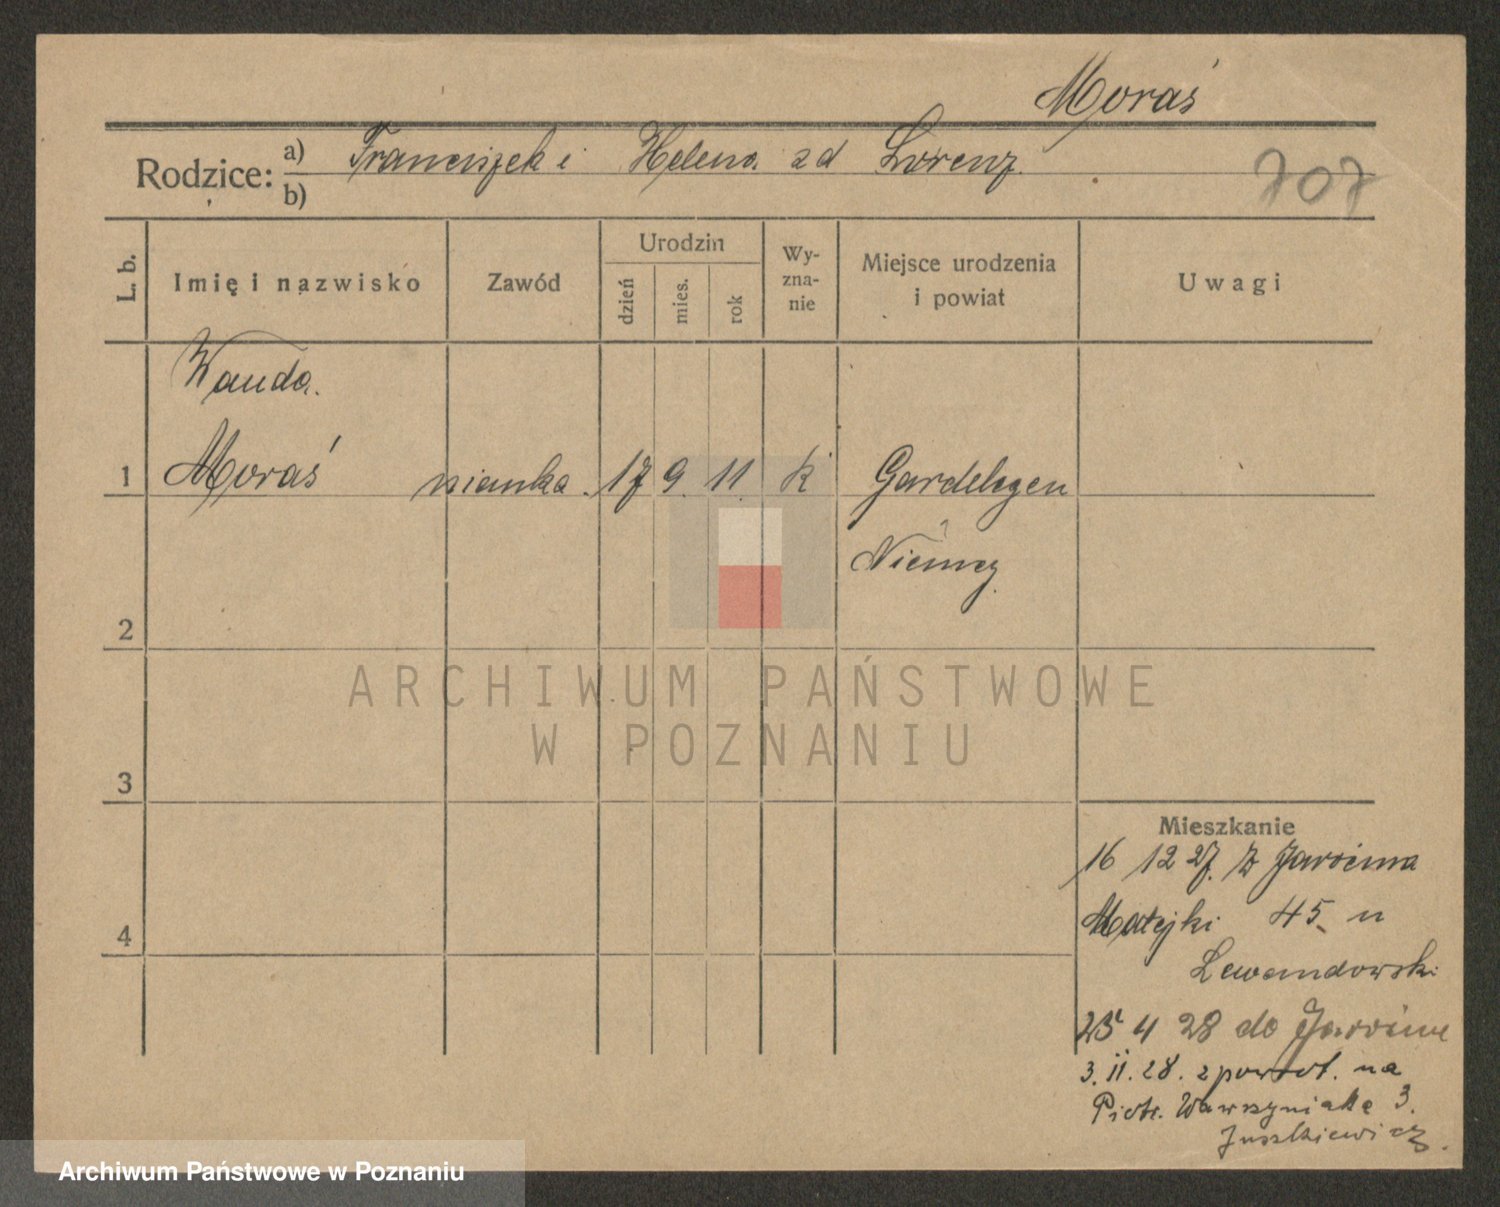 Moraś
Rodzice: a) Franciszek i Helena zd Lorenz
b)
707
L. b.
Imię i nazwisko
Zawód
Urodzin
dzień
mies.
rok
Wy-
zna-
nie
Miejsce urodzenia
i powiat
Uwagi
Wanda
1 Moraś nianka 17 9 11 k Gardelegen
Niemcy
2
3
4
Mieszkanie
16 12 27. z Jarocina
Matejki 45 u
Lewandowski
25 4 28 do Jarocina
3. 11. 28. z powrot. na
Piotr. Wawrzyniaka 3.
Juszkiewicz.
ARCHIWUM PAŃSTWOWE
W POZNANIU
Archiwum Państwowe w Poznaniu